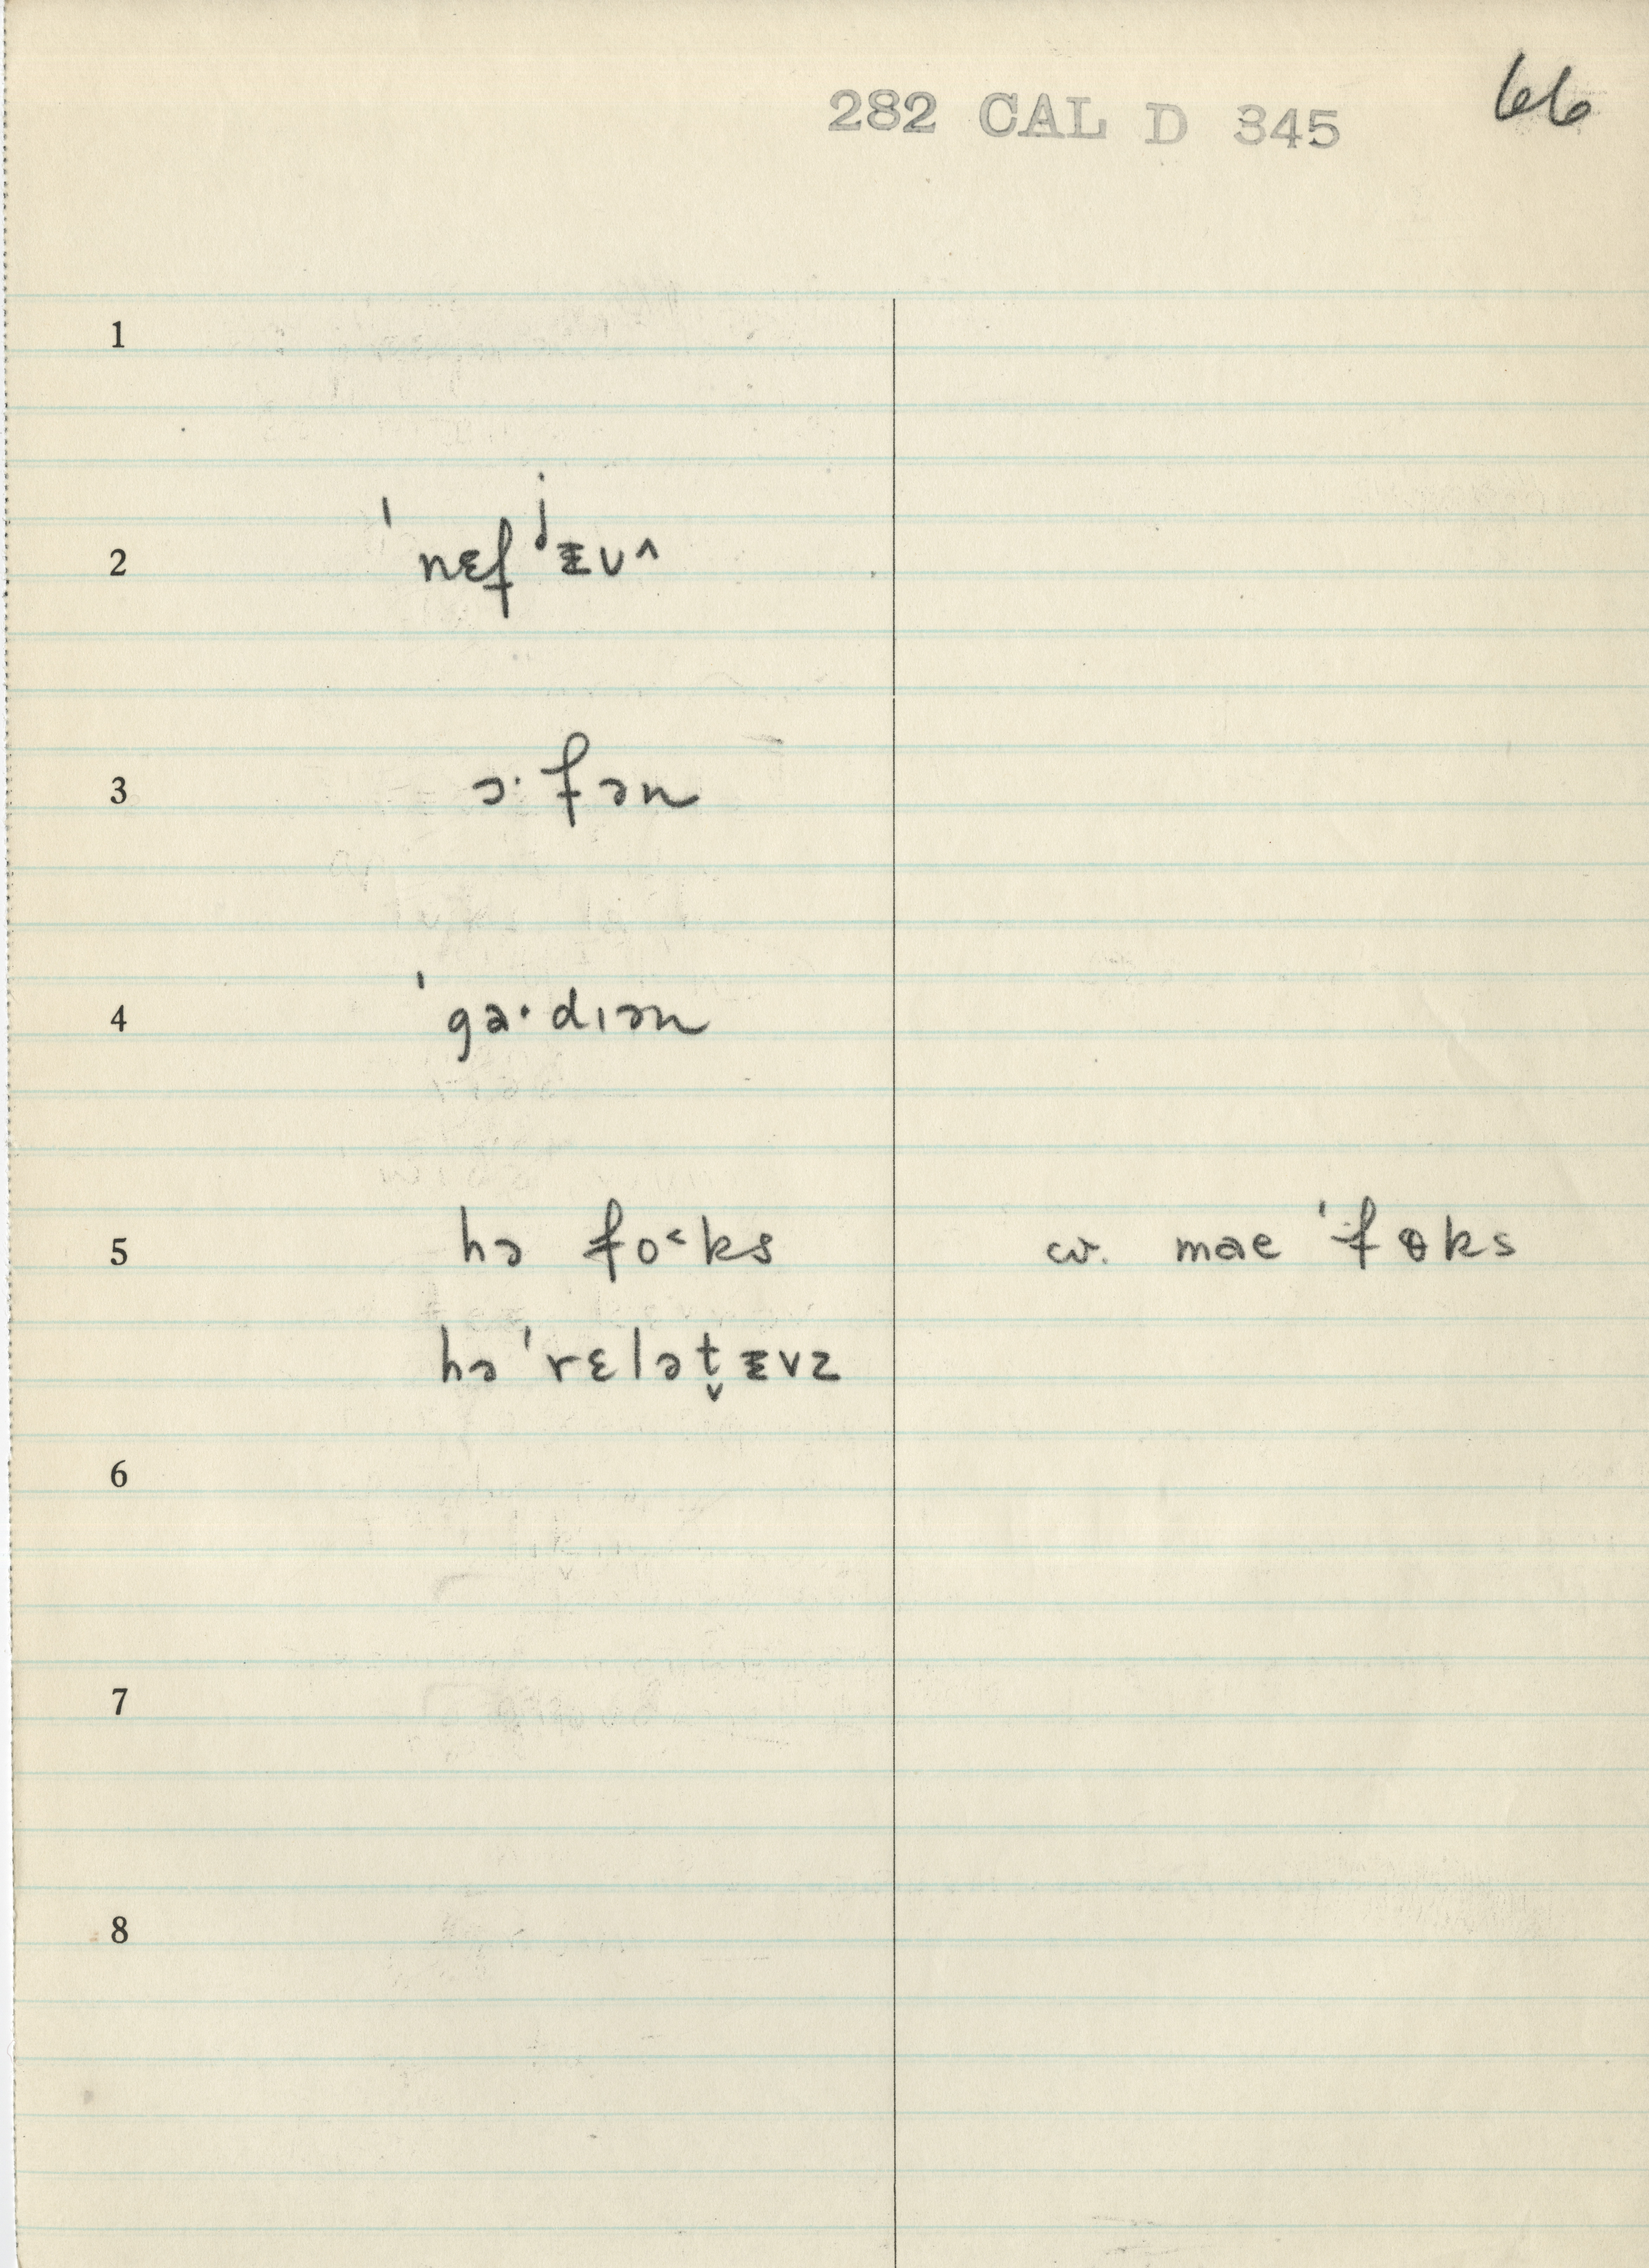 282 CAL D 345 66
1
2 ˈnɛfʲᵻu^
3 ɔ·fən
4 ˈga·dɪən
5 hə fo˂ks cv. mae ˈfɵks
hə ˈrɛlət̬ᵻvz
6
7
8